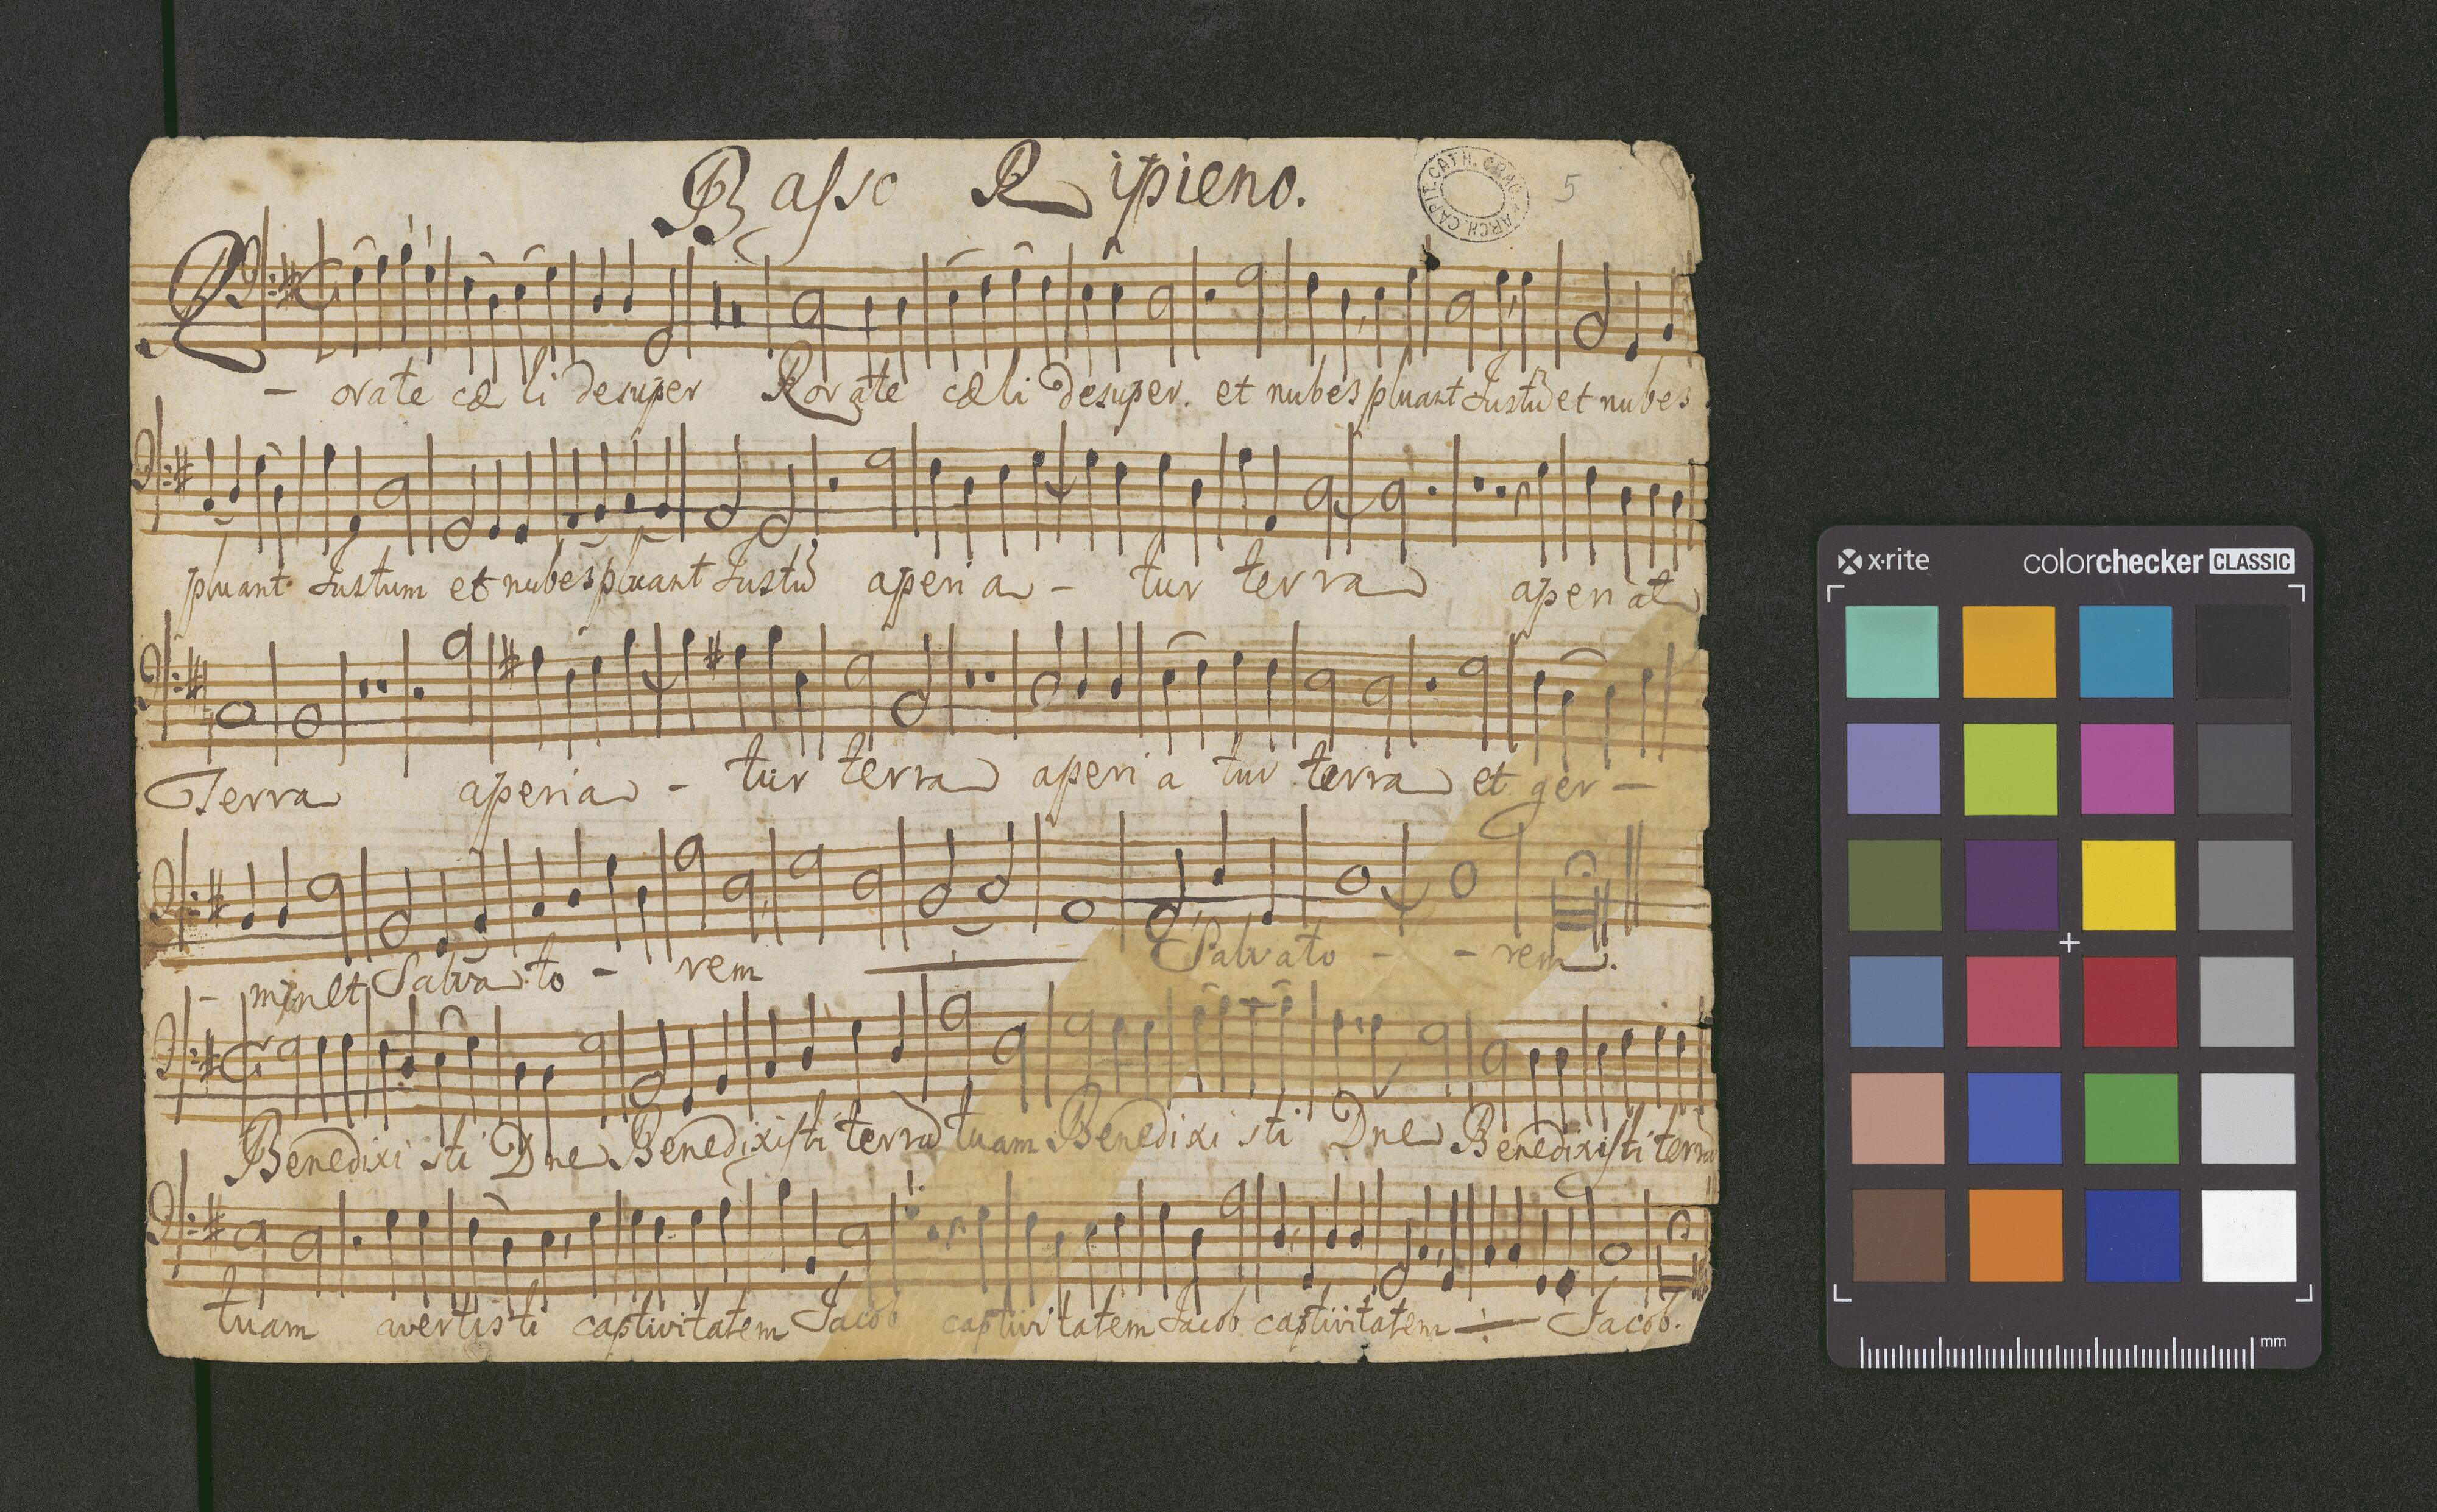 Basso Ripieno.
ARCH. CAPIT. CATH. CRAC.
5
Rorate cæli desuper Rorate cæli desuper. et nubes pluant Justū et nubes
pluant Justum et nubes pluant Justū aperia - tur terra aperiat
Terra aperia - tur terra aperia tur terra et ger -
- minet Salvato - rem Salvato - - rem.
Benedixi sti Dne Benedixisti terrā tuam Benedixi sti Dne Benedixisti terrā
tuam avertisti captivitatem Jacob captivitatem Jacob captivitatem ÷ Jacob.
x·rite
colorchecker CLASSIC
mm